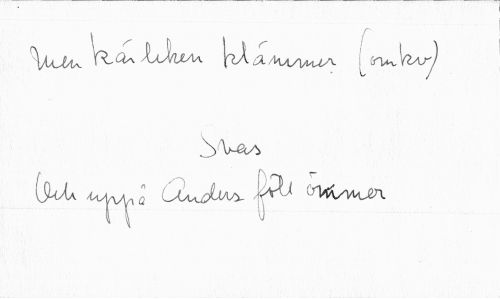 Men kärleken klämmer (omkv)
Svas
Och uppå Anders föll ömmer